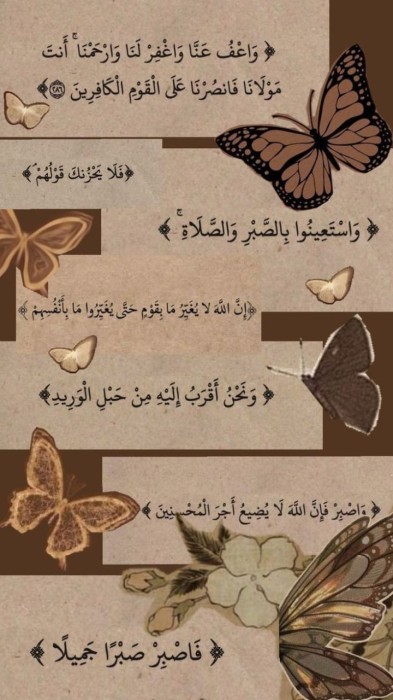 ﴿ وَاعْفُ عَنَّا وَاغْفِرْ لَنَا وَارْحَمْنَا ۚ أَنتَ
مَوْلَانَا فَانصُرْنَا عَلَى الْقَوْمِ الْكَافِرِينَ ﴿٢٨٦﴾ ﴾
﴿فَلَا يَحْزُنكَ قَوْلُهُمْ ۘ﴾
﴿ وَاسْتَعِينُوا بِالصَّبْرِ وَالصَّلَاةِ ۚ ﴾
﴿إِنَّ اللَّهَ لَا يُغَيِّرُ مَا بِقَوْمٍ حَتَّىٰ يُغَيِّرُوا مَا بِأَنْفُسِهِمْ ﴾
﴿ وَنَحْنُ أَقْرَبُ إِلَيْهِ مِنْ حَبْلِ الْوَرِيدِ﴾
﴿ وَاصْبِرْ فَإِنَّ اللَّهَ لَا يُضِيعُ أَجْرَ الْمُحْسِنِينَ ﴾
﴿ فَاصْبِرْ صَبْرًا جَمِيلًا ﴾